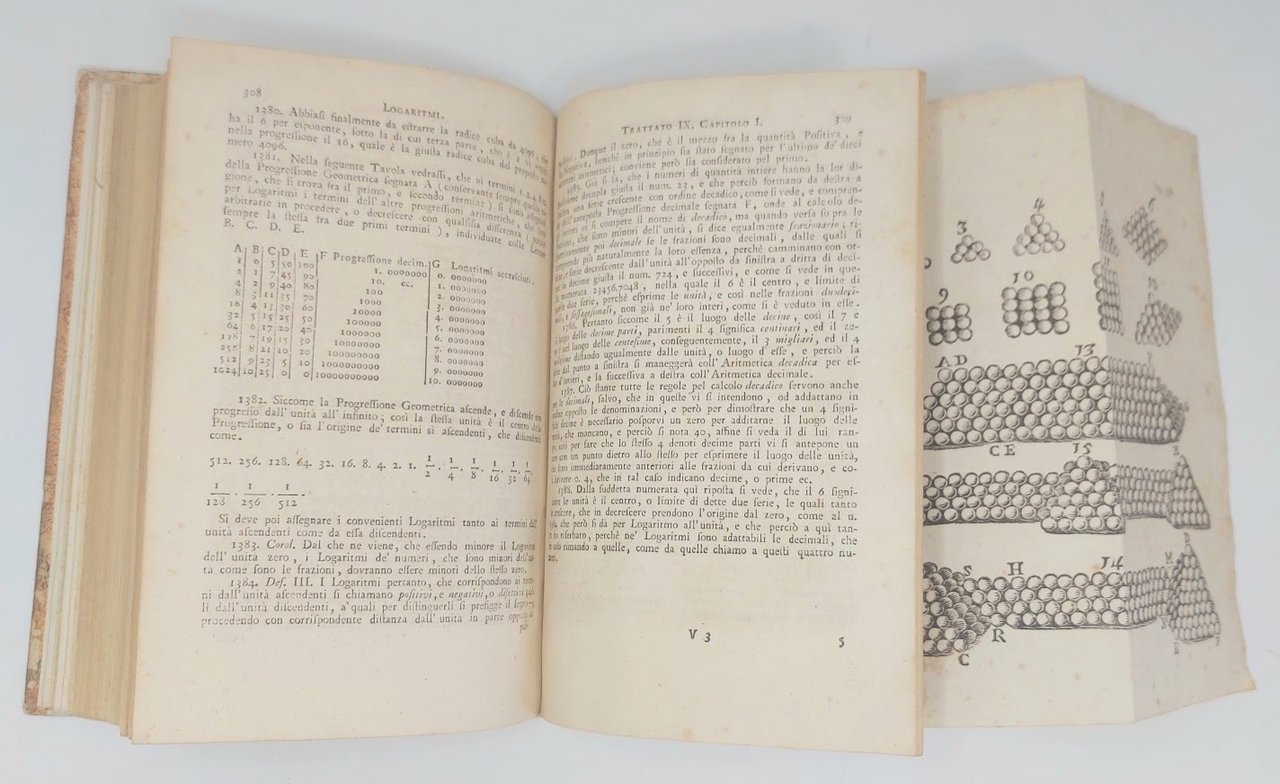 308
LOGARITMI.
1380. Abbiaſi finalmente da eſtrarre la radice cuba da 4096, che
ha il 6 per eſponente, ſotto la di cui terza parte, che è 2 vi
nella progreſſione il 16, quale è la giuſta radice cuba del propoſto nu-
mero 4096.
1381. Nella ſeguente Tavola vedraſſi, che ai termini 1.2.4.8
della Progreſſione Geometrica ſegnata A (conſervante ſempre
gione, che ſi trova fra il primo, e ſecondo termine) ſi ſono
per Logaritmi i termini dell'altre progreſſioni aritmetiche,
arbitrarie in procedere, o decreſcere con qualſiſia differenza (
ſempre la ſteſſa fra due primi termini), individuate colle Lettere
B. C. D. E.
A B C D E F Progreſſione decim. G Logaritmi accreſciuti.
1 0 5 50 100 1. 0000000 0. 0000000
2 1 7 45 90 10. ec. 1. 0000000
4 2 9 40 80 100 2. 0000000
8 3 11 35 70 1000 3. 0000000
16 4 13 30 60 10000 4. 0000000
32 5 15 25 50 100000 5. 0000000
64 6 17 20 40 1000000 6. 0000000
128 7 19 15 30 10000000 7. 0000000
256 8 21 10 20 100000000 8. 0000000
512 9 23 5 10 1000000000 9. 0000000
1024 10 25 0 0 10000000000 10. 0000000
1382. Siccome la Progreſſione Geometrica aſcende, e diſcende con
progreſſo dall'unità all'infinito; così la ſteſſa unità è il centro della
Progreſſione, o ſia l'origine de' termini sì aſcendenti, che diſcendenti
come.
512. 256. 128. 64. 32. 16. 8. 4. 2. 1. 1/2 . 1/4 . 1/8 . 1/16 . 1/32 . 1/64
1/128 . 1/256 . 1/512 .
Si deve poi aſſegnare i convenienti Logaritmi tanto ai termini dall'
unità aſcendenti come da eſſa diſcendenti.
1383. Corol. Dal che ne viene, che eſſendo minore il Logaritmo
dell'unità zero, i Logaritmi de' numeri, che ſono minori dell'uni-
tà come ſono le frazioni, dovranno eſſere minori dello ſteſſo zero.
1384. Def. III. I Logaritmi pertanto, che corriſpondono ai termi-
ni dall'unità aſcendenti ſi chiamano poſitivi, e negativi, o difettivi quel-
li dall'unità diſcendenti, a' quali per diſtinguerli ſi prefigge il ſegno
procedendo con corriſpondente diſtanza dall'unità in parte oppoſta
TRATTATO IX. CAPITOLO I. 309
Dunque il zero, che è il mezzo fra la quantità Poſitiva, e
Negativa, benchè in principio ſia ſtato ſegnato per l'ultimo de' dieci
aritmetici, conviene però ſia conſiderato pel primo.
1385. Già ſi ſa, che i numeri di quantità intiere hanno la lor di-
decupla giuſta il num. 27, e che perciò formano da deſtra a
una ſerie creſcente con ordine decadico, come ſi vede, e compren-
dell'antepoſta Progreſſione decimale ſegnata F, onde al calcolo de-
vi ſi compete il nome di decadico, ma quando verſa ſopra le
che ſono minori dell'unità, ſi dice egualmente frazionario; ri-
poi decimale ſe le frazioni ſono decimali, dalle quali ſi
più naturalmente la loro eſſenza, perchè camminano con or-
e ſerie decreſcente dall'unità all'oppoſto da ſiniſtra a dritta di deci-
in decime giuſta il num. 724, e ſucceſſivi, e come ſi vede in que-
numerata 23456.7048, nella quale il 6 è il centro, e limite di
due ſerie, perchè eſprime le unità, e così nelle frazioni duodeci-
e ſeſſageſimali, non già ne' loro interi, come ſi è veduto in eſſe.
1386. Pertanto ſiccome il 5 è il luogo delle decine, così il 7 è
luogo delle decime parti, parimenti il 4 ſignifica centinari, ed il ze-
nel luogo delle centeſime, conſeguentemente, il 3 migliari, ed il 4
diſtando ugualmente dalle unità, o luogo d'eſſe, e perciò la
dal punto a ſiniſtra ſi maneggerà coll'Aritmetica decadica per eſ-
d'intieri, e la ſucceſſiva a deſtra coll'Aritmetica decimale.
1387. Ciò ſtante tutte le regole pel calcolo decadico ſervono anche
le decimali, ſalvo, che in queſte vi ſi intendono, od addattano in
oppoſto le denominazioni, e però per dimoſtrare che un 4 ſigni-
decine è neceſſario poſporvi un zero per additarne il luogo delle
che mancano, e perciò ſi nota 40, affine ſi veda il di lui ran-
così per fare che lo ſteſſo 4 denoti decime parti vi ſi antepone un
con un punto dietro allo ſteſſo per eſprimere il luogo delle unità,
ſono immediatamente anteriori alle frazioni da cui derivano, e co-
ſcrivere 0. 4, che in tal caſo indicano decime, o prime ec.
1388. Dalla ſuddetta numerata qui ripoſta ſi vede, che il 6 ſigni-
le unità è il centro, o limite di dette due ſerie, le quali tanto
che in decreſcere prendono l'origine dal zero, come al n.
che però ſi dà per Logaritmo all'unità, e che perciò a quì tan-
riſerbato, perchè ne' Logaritmi ſono adattabili le decimali, che
rimando a quelle, come da quelle chiamo a queſti quattro nu-
V 3 5
3 4
9 10
A D 13
C E 15
S H 14
R
C